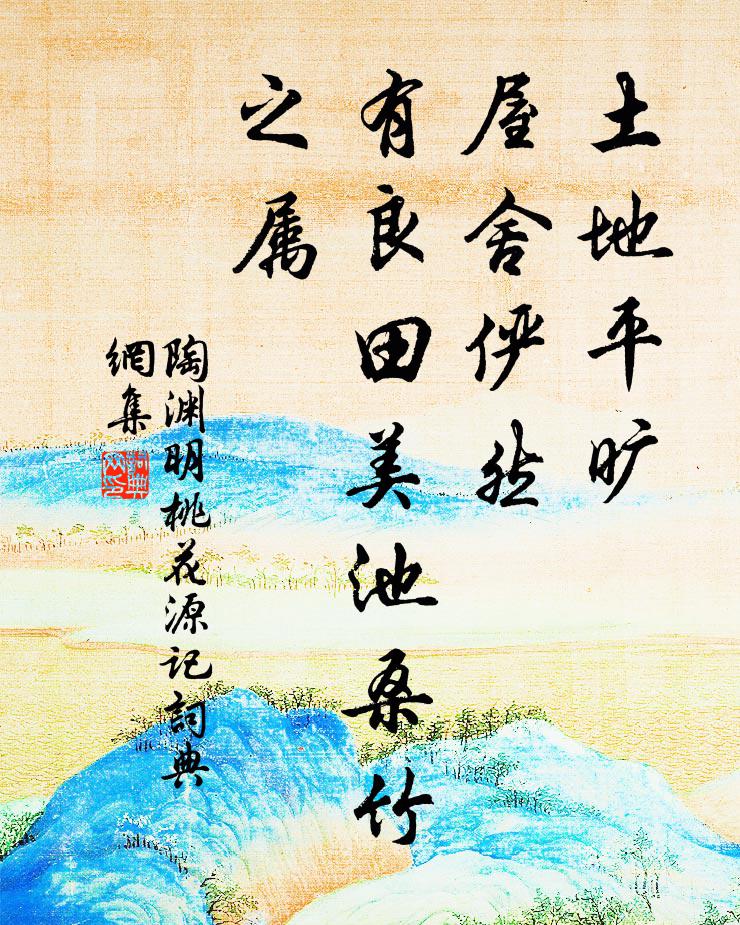 土地平旷
屋舍俨然
有良田美池桑竹
之属
陶渊明桃花源记詞典
網集
詞典
网印